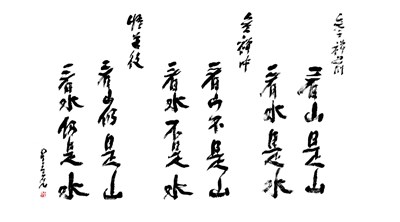 看山是山
看水是水
參禪時
看山不是山
看水不是水
悟道後
看山仍是山
看水仍是水